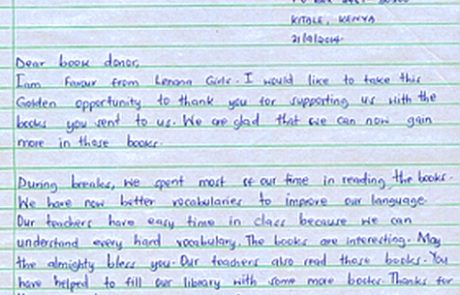 KITALE, KENYA
21/9/2014
Dear book donor,
I am Favour from Lenana Girls. I would like to take this
Golden opportunity to thank you for supporting us with the
books you sent to us. We are glad that we can now gain
more in those books.
During breaks, we spent most of our time in reading the books.
We have now better vocabularies to improve our language.
Our teachers have easy time in class because we can
understand every hard vocabulary. The books are interesting. May
the almighty bless you. Our teachers also read those books. You
have helped to fill our library with some more books. Thanks for